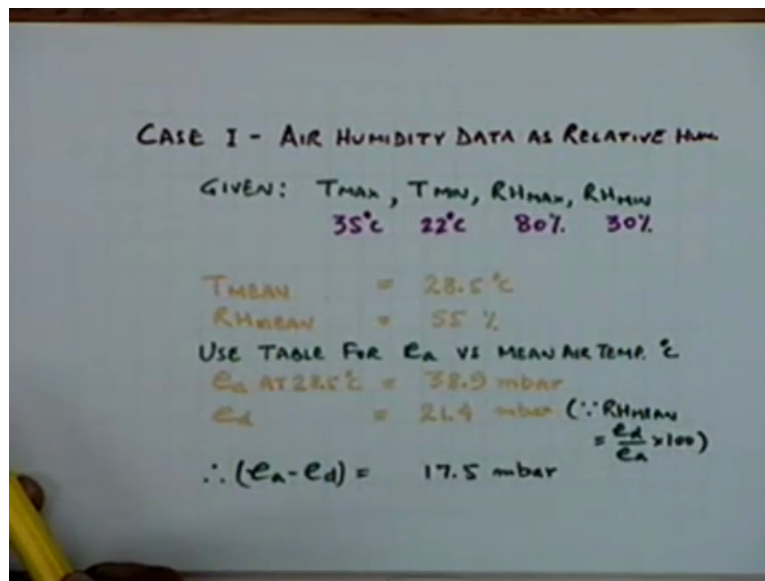 CASE I - AIR HUMIDITY DATA AS RELATIVE HUM.
GIVEN: TMAX, TMIN, RHMAX, RHMIN
35°C 22°C 80% 30%
TMEAN = 28.5°C
RHMEAN = 55 %
USE TABLE FOR ea VS MEAN AIR TEMP. °C
ea AT 28.5°C = 38.9 mbar
ed = 21.4 mbar (∵ RHMEAN
= ed/ea ×100)
∴ (ea-ed) = 17.5 mbar